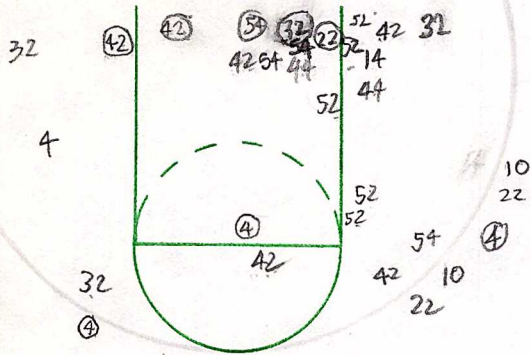 32 42 42 54 32 22 52 42 32
42 54 54 52 14
44 44
52
4
10
52 22
52
4 54 4
42 42 10
32 22
4